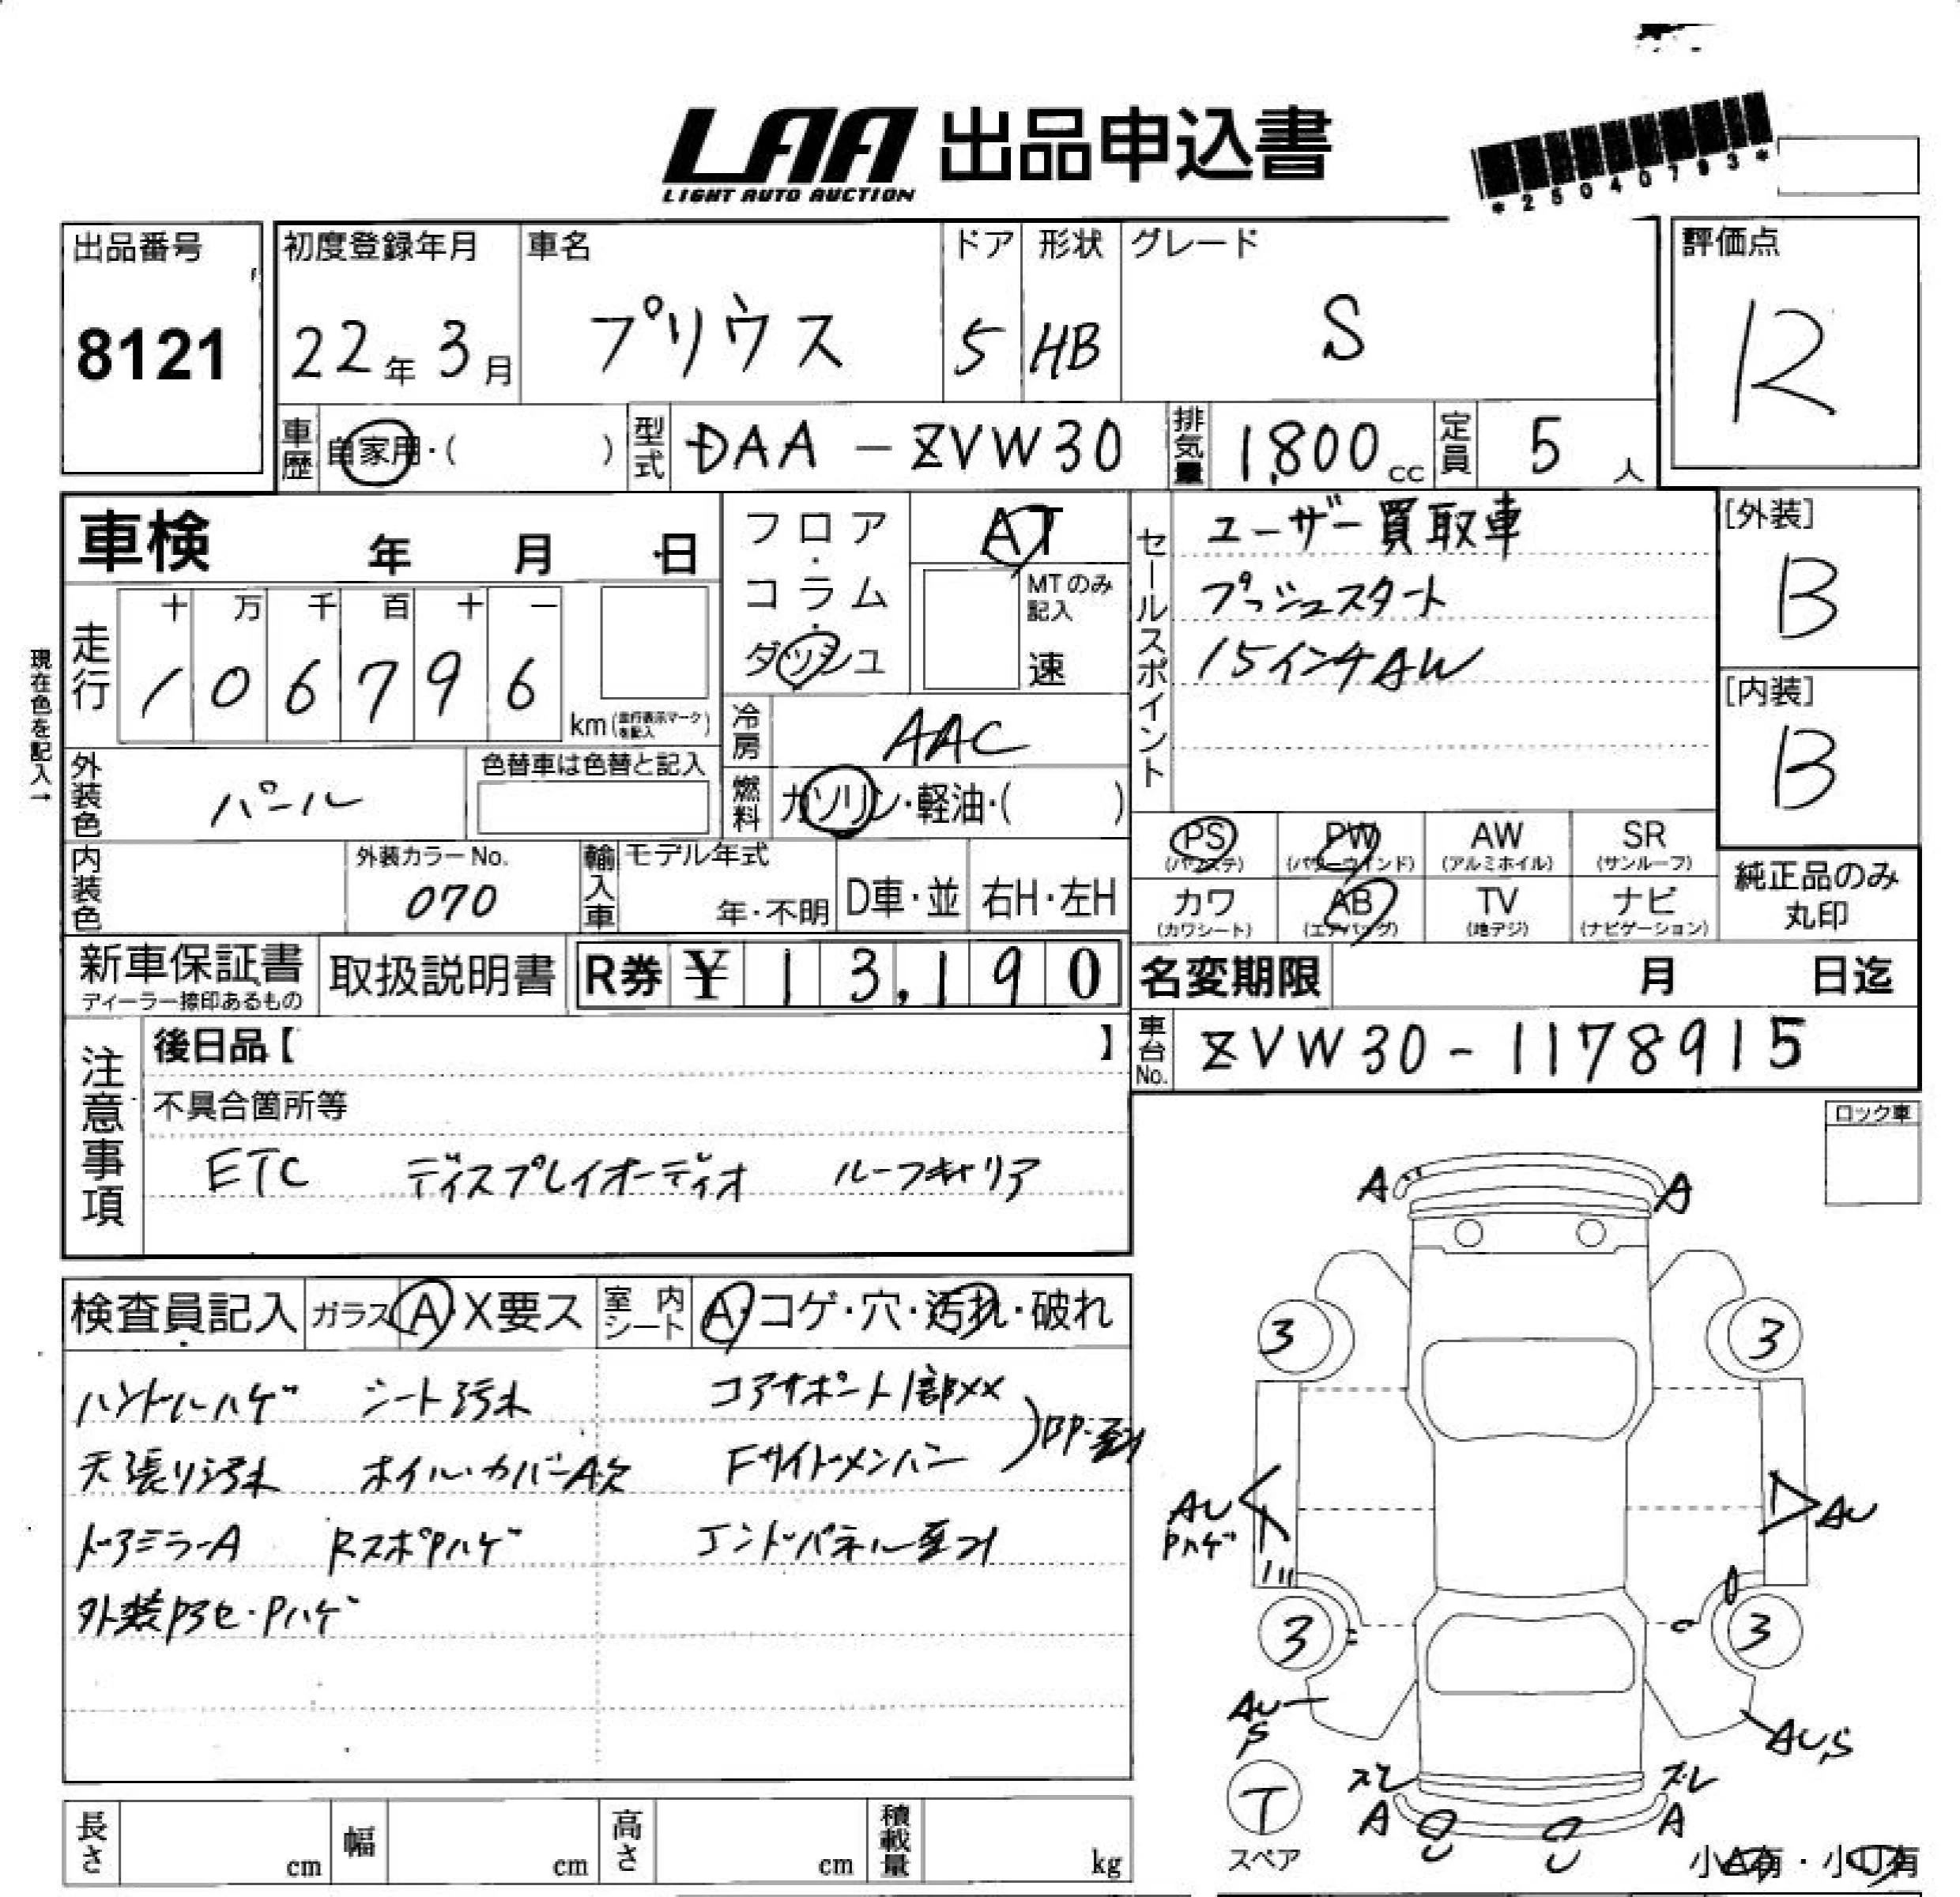 LAA 出品申込書
LIGHT AUTO AUCTION
*25040793*
出品番号
8121
初度登録年月
22年 3月
車名
プリウス
ドア
5
形状
HB
グレード
S
評価点
R
車歴 自家用・( )
型式 DAA-ZVW30
排気量 1,800cc
定員 5人
現在色を記入→
車検 年 月 日
走行 十 万 千 百 十 一
1 0 6 7 9 6
km (走行表示マークを記入)
フロア・コラム・ダッシュ
AT
MTのみ記入
速
冷房 AAC
燃料 ガソリン・軽油・( )
外装色 パール
色替車は色替と記入
内装色
外装カラーNo.
070
輸入車 モデル年式
年・不明
D車・並
右H・左H
セールスポイント
ユーザー買取車
プッシュスタート
15インチAW
[外装]
B
[内装]
B
PS (パワステ)
PW (パワーウインド)
AW (アルミホイル)
SR (サンルーフ)
カワ (カワシート)
AB (エアバッグ)
TV (地デジ)
ナビ (ナビゲーション)
純正品のみ
丸印
新車保証書
ディーラー捺印あるもの
取扱説明書
R券 ¥13,190
名変期限 月 日迄
車台No. ZVW30-1178915
注意事項
後日品【 】
不具合箇所等
ETC ディスプレイオーディオ ルーフキャリア
ロック車
検査員記入 ガラス A・X要ス 室内シート A・コゲ・穴・汚れ・破れ
ハンドルハゲ シート汚れ コアサポート1部××
天張り汚れ ホイルカバーA欠 Fサイドメンバー
ドアミラーA RスポPハゲ エンドパネル歪み
外装Pアセ・Pハゲ
A A
3 3
AU
Pハゲ
AU
3 3
AU
S
AU,S
ズレ ズレ
A A
T
スペア
小A有・小U有
長さ cm
幅 cm
高さ cm
積載量 kg